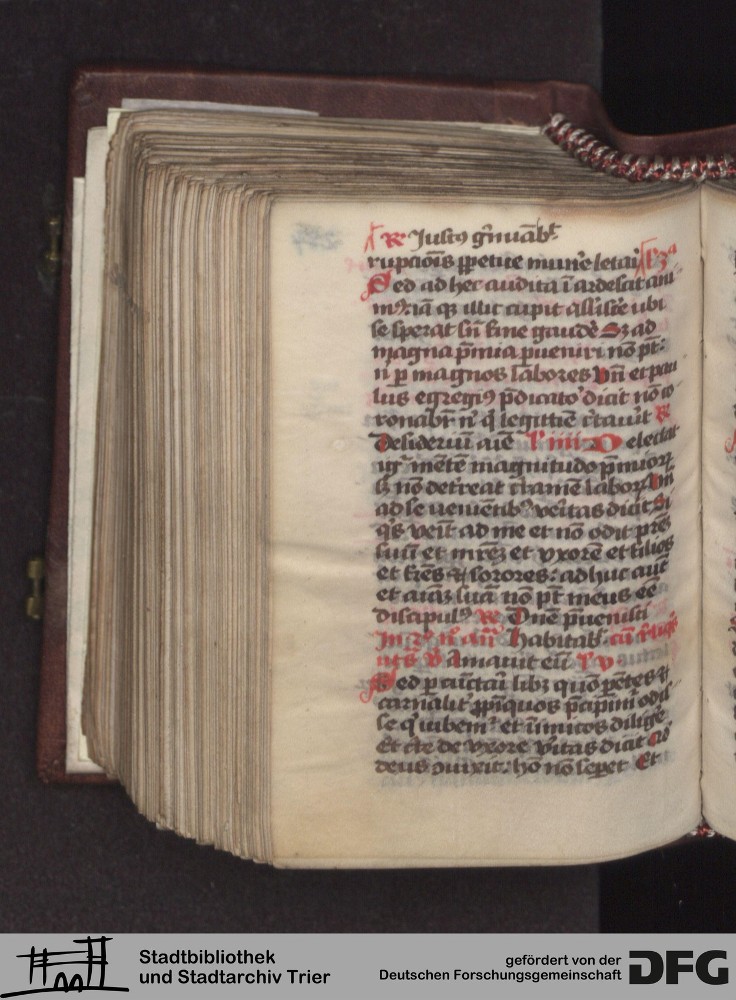 R Justus gminabit
rupcionis ppetue munere letai
Sed ad hec audita i ardescit ani
mus iam qz illic cupit assistere ubi
se sperat sin fine gaudere Sz ad
magna pmia pueniri no pt:
n p magnos labores Vn et pau
lus egregius pdicator dicit no co
ronabr n q legittie ctauit R
Desideriu aie l iiii Delectat
igr mente magnitudo pmior
sz no deterreat ctamen labor Vn
ad se uenietibus veritas dicit Si
qs venit ad me et no odit pres
suu et mrez et vxore et filios
et fres et sorores: adhuc aut
et aiaz sua no pt meus ee
discipulus R Dne puenisti
habitabit
Amauit eu l v
Sed pcunctari libz quo pentes et
carnalit ppiquos pcipimr odisse
se q iubemr et inimicos diligere
Et cte de vxore veritas dicit Qd
deus ouixit: ho no sepet Et
Stadtbibliothek
und Stadtarchiv Trier
gefördert von der
Deutschen Forschungsgemeinschaft
DFG